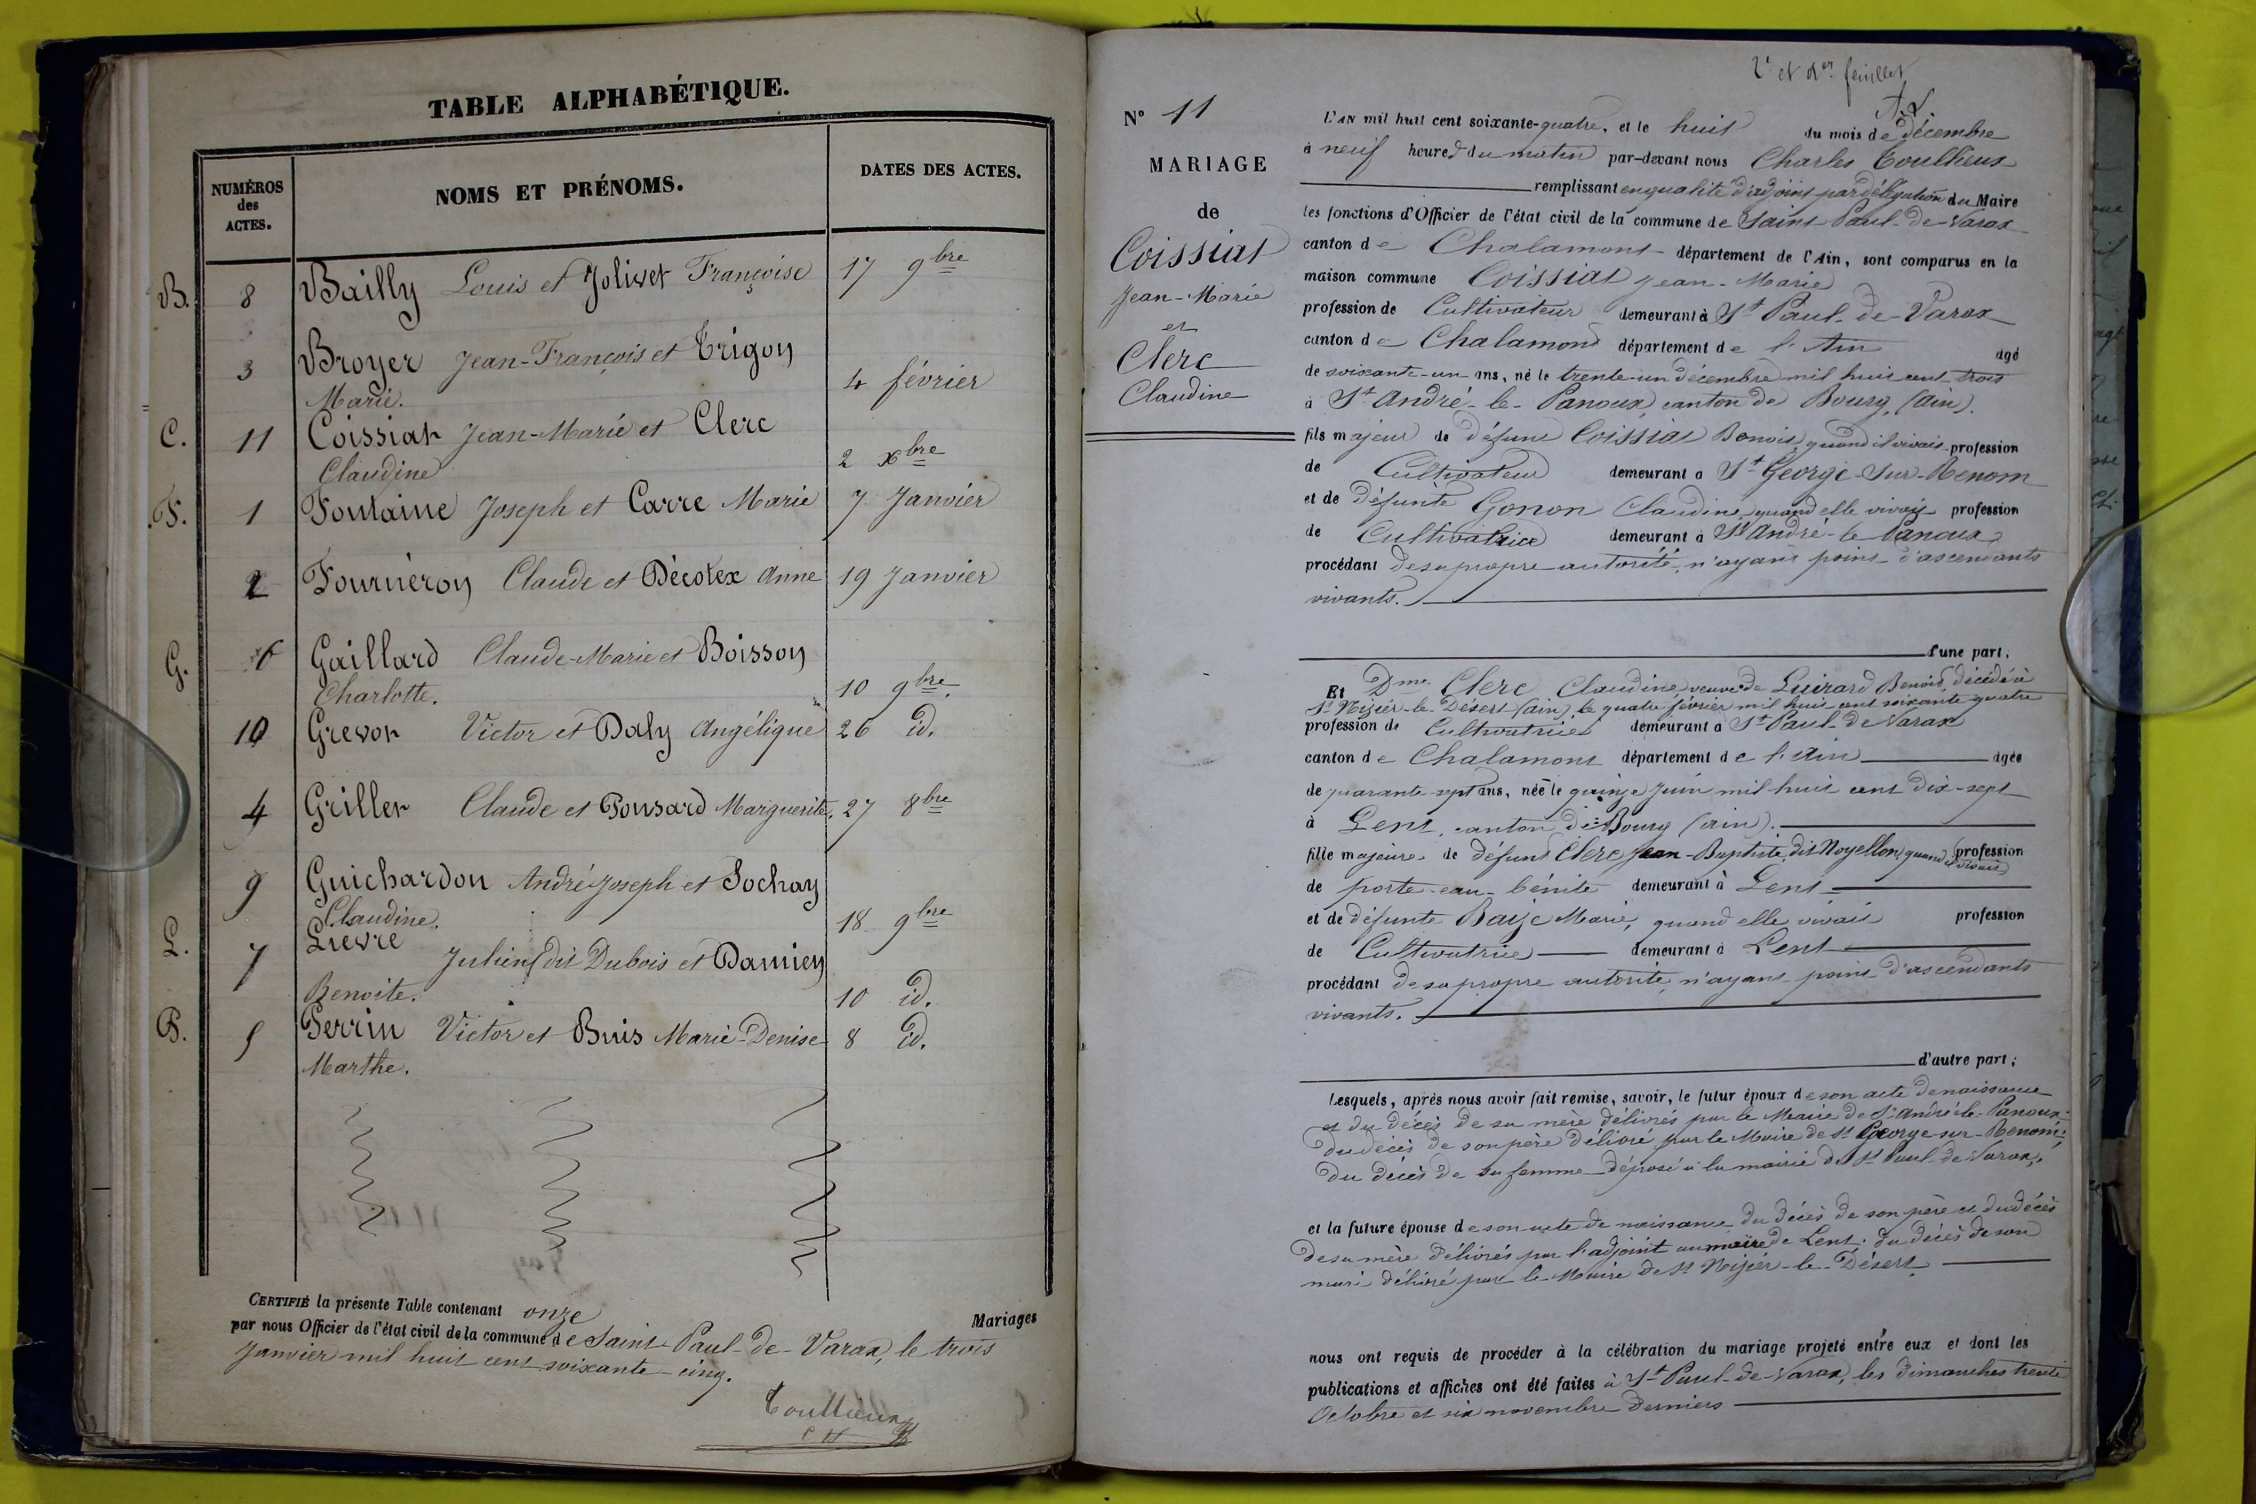 TABLE ALPHABÉTIQUE.
NUMÉROS des ACTES.
NOMS ET PRÉNOMS.
DATES DES ACTES.
B. 8 Bailly Louis et Jolivet Françoise 17 9bre
3 Broyer Jean-François et Trigon
Marie. 4 février
C. 11 Coissiat Jean-Marie et Clerc
Claudine 2 Xbre
F. 1 Fontaine Joseph et Carre Marie 7 Janvier
2 Fourneron Claude et Décotex Anne 19 Janvier
G. 6 Gaillard Claude-Marie et Boisson
Charlotte. 10 9bre.
10 Grevot Victor et Daly Angélique 26 id.
4 Grillet Claude et Ponsard Marguerite. 27 8bre
9 Guichardon André Joseph et Sochay
Claudine. 18 9bre
L. 7 Lievre Julien (dit Dubois et Damien
Benoite. 10 id.
P. 5 Perrin Victor et Buis Marie-Denise
Marthe. 8 id.
CERTIFIÉ la présente Table contenant onze Mariages
par nous Officier de l'état civil de la commune de Saint-Paul-de-Varax, le trois
Janvier mil huit cent soixante-cinq.
Toullieux
2e et der feuillet
N° 11
MARIAGE
de
Coissiat
Jean-Marie
et
Clerc
Claudine
L'AN mil huit cent soixante-quatre, et le huit du mois de décembre
à neuf heures du matin par-devant nous Charles Toullieux
remplissant en qualité d'adjoint par délégation du Maire
les fonctions d'Officier de l'état civil de la commune de Saint-Paul-de-Varax
canton de Chalamont département de l'Ain, sont comparus en la
maison commune Coissiat Jean-Marie
profession de Cultivateur demeurant à St Paul-de-Varax
canton de Chalamont département de l'Ain agé
de soixante-un ans, né le trente-un décembre mil huit cent trois
à St André-le-Panoux, canton de Bourg, (Ain).
fils majeur de défunt Coissiat Benoit, quand il vivait profession
de Cultivateur demeurant a St George-sur-Renom
et de défunte Gonon Claudine, quand elle vivait profession
de Cultivatrice demeurant à St André-le-Panoux
procédant de sa propre autorité, n'ayant point d'ascendants
vivants.
d'une part;
Et Dme Clerc Claudine veuve de Luirard Benoit, décédé à
St Nizier-le-Désert (Ain) le quatre février mil huit cent soixante quatre
profession de Cultivatrice demeurant à St Paul-de-Varax
canton de Chalamont département de l'Ain agée
de quarante-sept ans, née le quinze Juin mil huit cent dix-sept
à Lent, canton de Bourg (Ain).
fille majeure de défunt Clerc Jean-Baptiste, dit Noyellon, quand il vivait profession
de porte-eau-bénite demeurant à Lent
et de défunte Baise Marie, quand elle vivait profession
de Cultivatrice demeurant à Lent
procédant de sa propre autorité, n'ayant point d'ascendants
vivants.
d'autre part;
Lesquels, après nous avoir fait remise, savoir, le futur époux de son acte de naissance
et du décès de sa mère délivrés par le Maire de St André-le-Panoux;
du décès de son père délivré par le Maire de St George-sur-Renom;
du décès de sa femme déposé à la mairie de St Paul-de-Varax,
et la future épouse de son acte de naissance du décès de son père et du décès
de sa mère délivrés par l'adjoint au maire de Lent; du décès de son
mari délivré par le Maire de St Nizier-le-Désert
nous ont requis de procéder à la célébration du mariage projeté entre eux et dont les
publications et affiches ont été faites à St Paul-de-Varax, les dimanches trente
Octobre et six novembre derniers